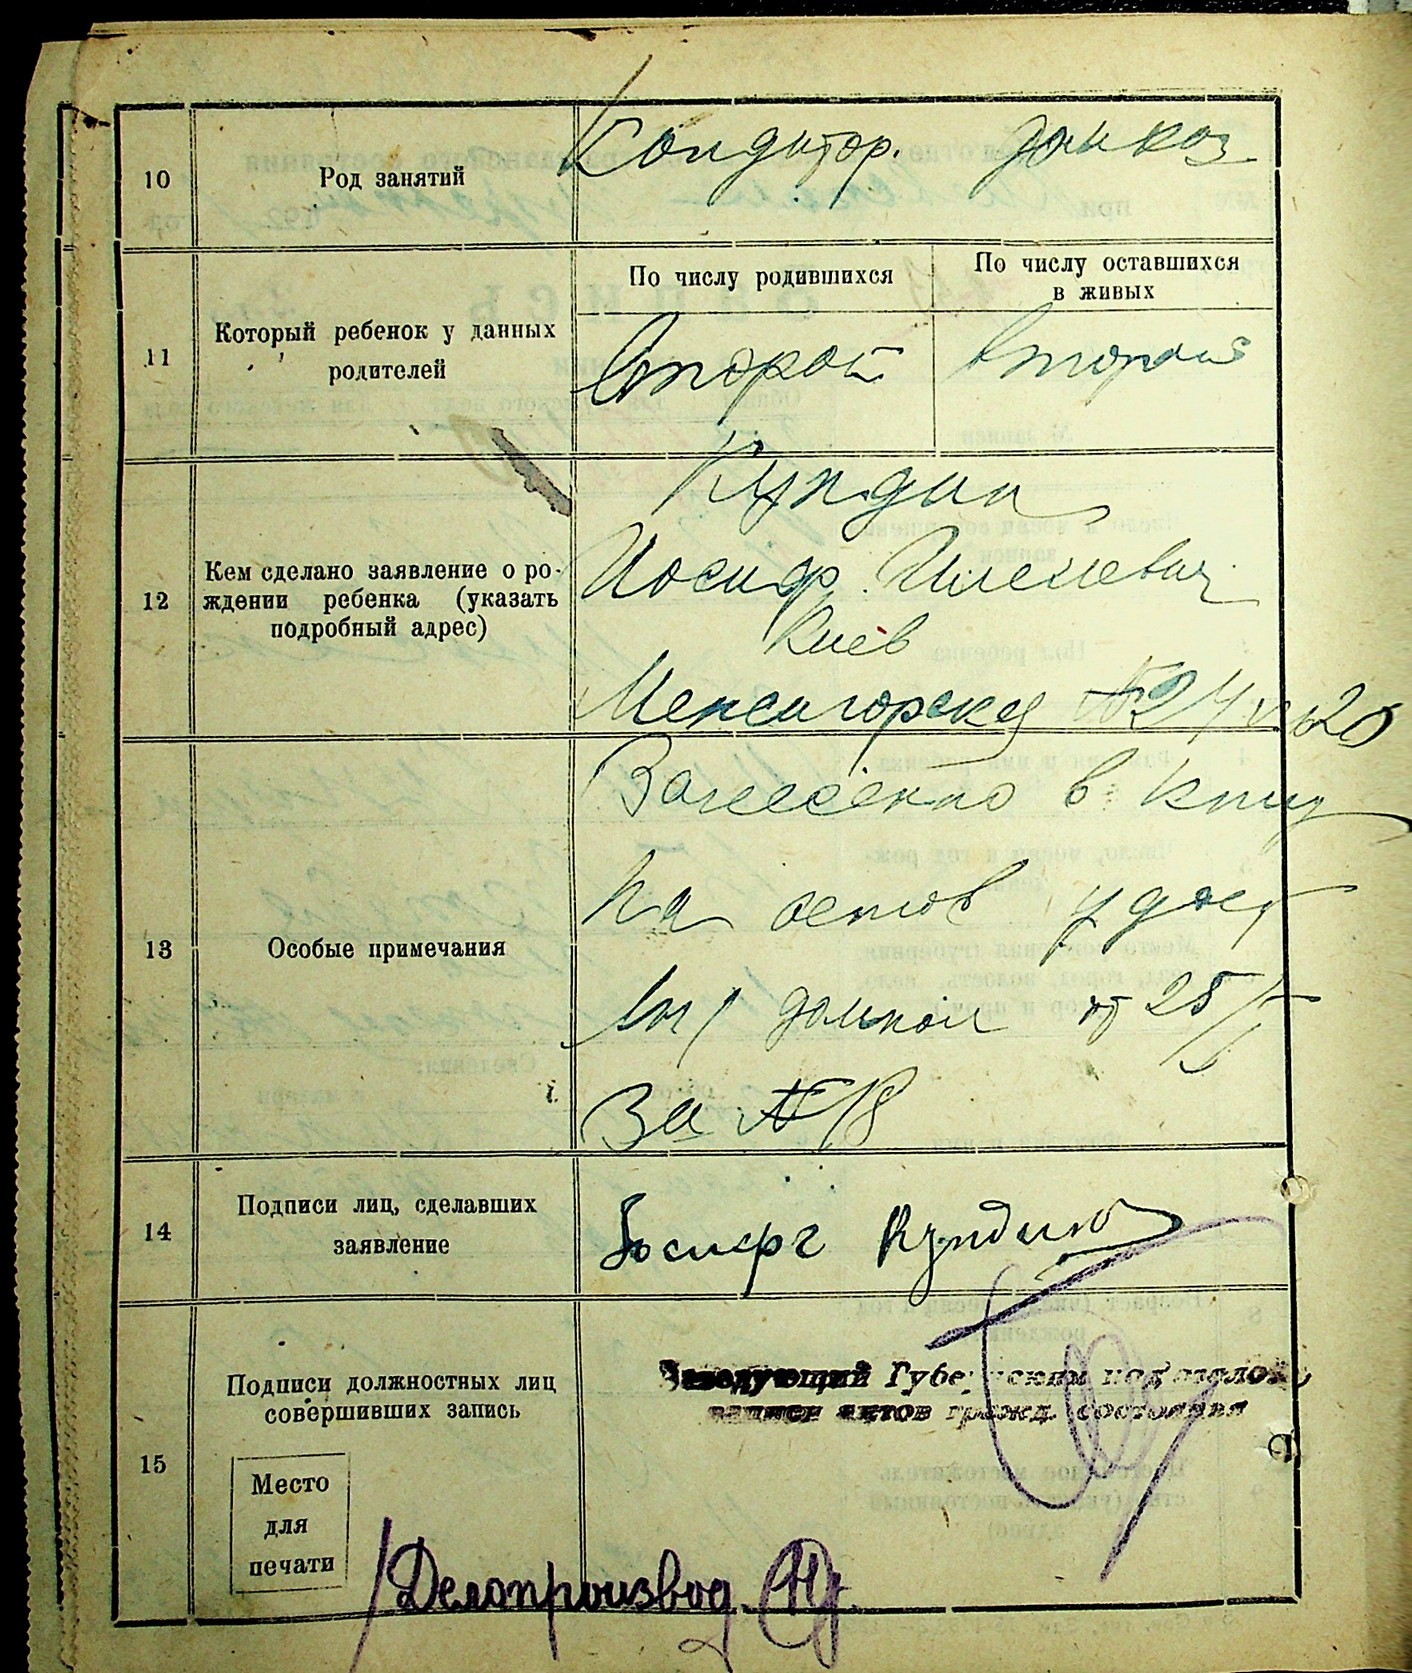 10
Род занятий
Кондитор. дом хоз
11
Который ребенок у данных
родителей
По числу родившихся
По числу оставшихся
в живых
второй
второй
12
Кем сделано заявление о ро-
ждении ребенка (указать
подробный адрес)
Кундин
Иосиф
Киев
Межигорская №24 20
13
Особые примечания
Занесено в книгу
На основ удост
от 25/V
За №18
14
Подписи лиц, сделавших
заявление
Кундин
15
Подписи должностных лиц
совершивших запись
Место
для
печати
Заведующий Губернским подотделом
записи актов гражд. состояния
Делопроизвод.